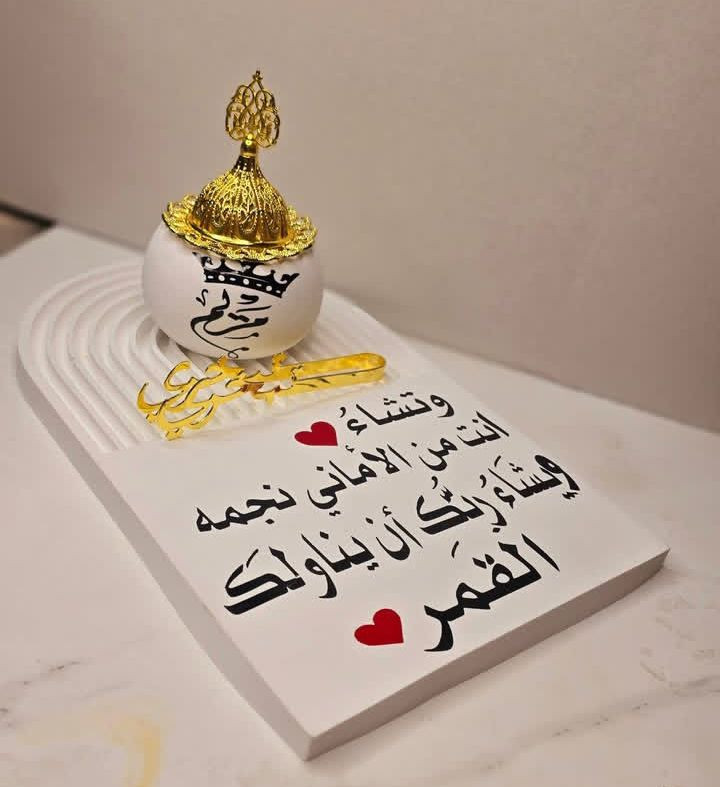 مريم
وتشاءُ
انت من الأماني نجمه
ويشَاءُ ربُّك أن يناولكَ
القمَر